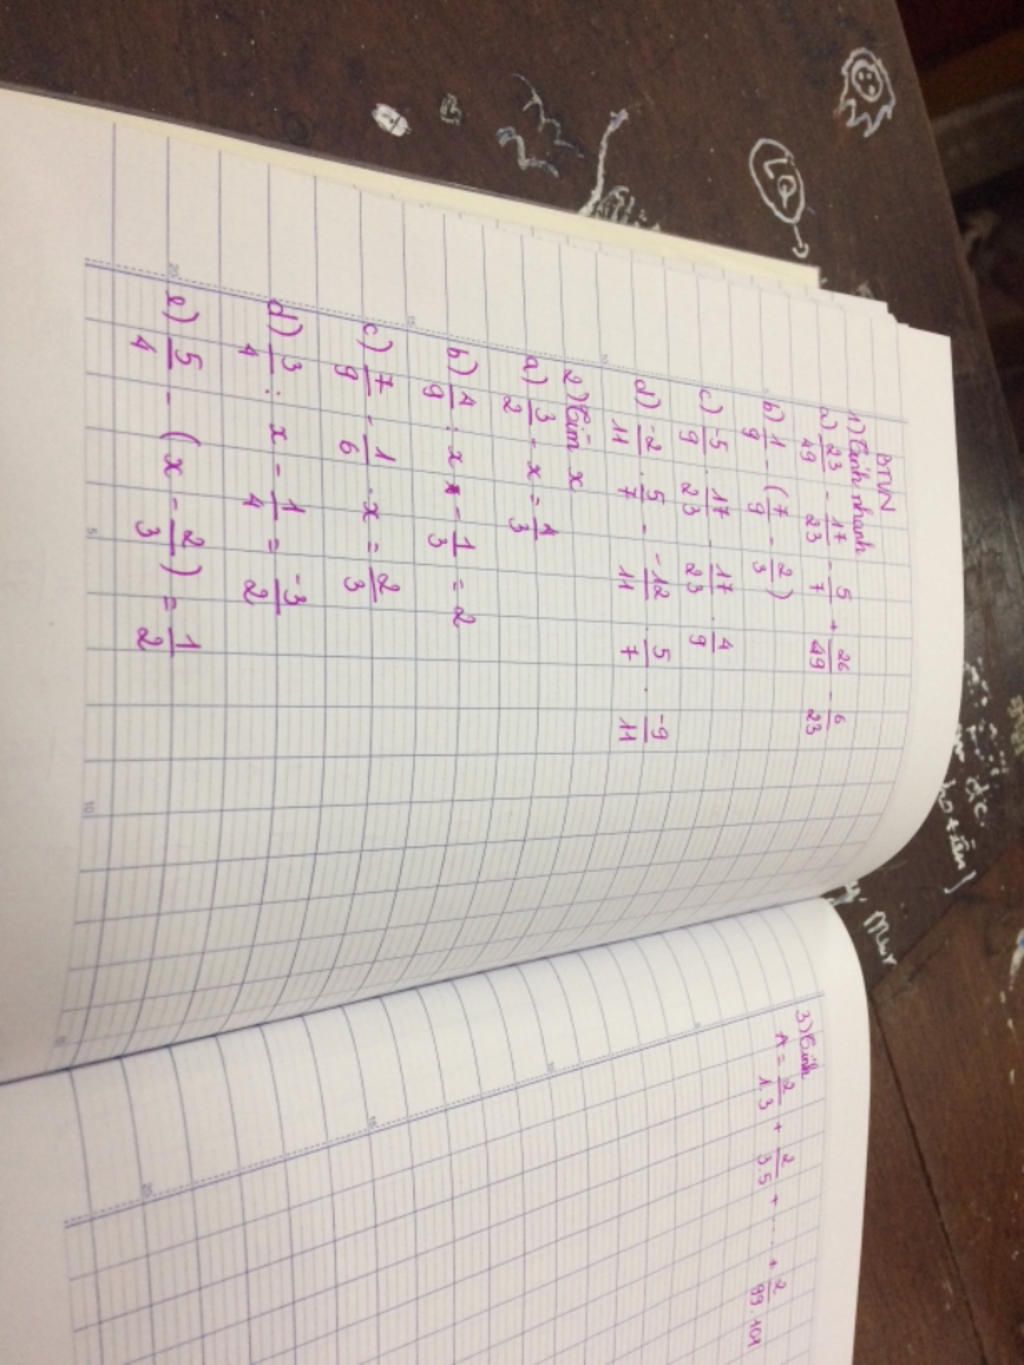 BTVN
1) Tính nhanh
a) 23/49 - 17/23 - 5/7 + 26/49 - 6/23
b) 1/9 - (7/9 - 2/3)
c) -5/9 . 17/23 - 17/23 . 4/9
d) -2/11 . 5/7 - -12/11 . 5/7 . -9/11
2) Tìm x
a) 3/2 - x = 1/3
b) 4/9 : x - 1/3 = 2
c) 7/9 - 1/6 . x = 2/3
d) 3/4 : x - 1/4 = -3/2
e) 5/4 - (x - 2/3) = 1/2
3) Tính
A = 2/1.3 + 2/3.5 + .... + 2/99.101
LQ